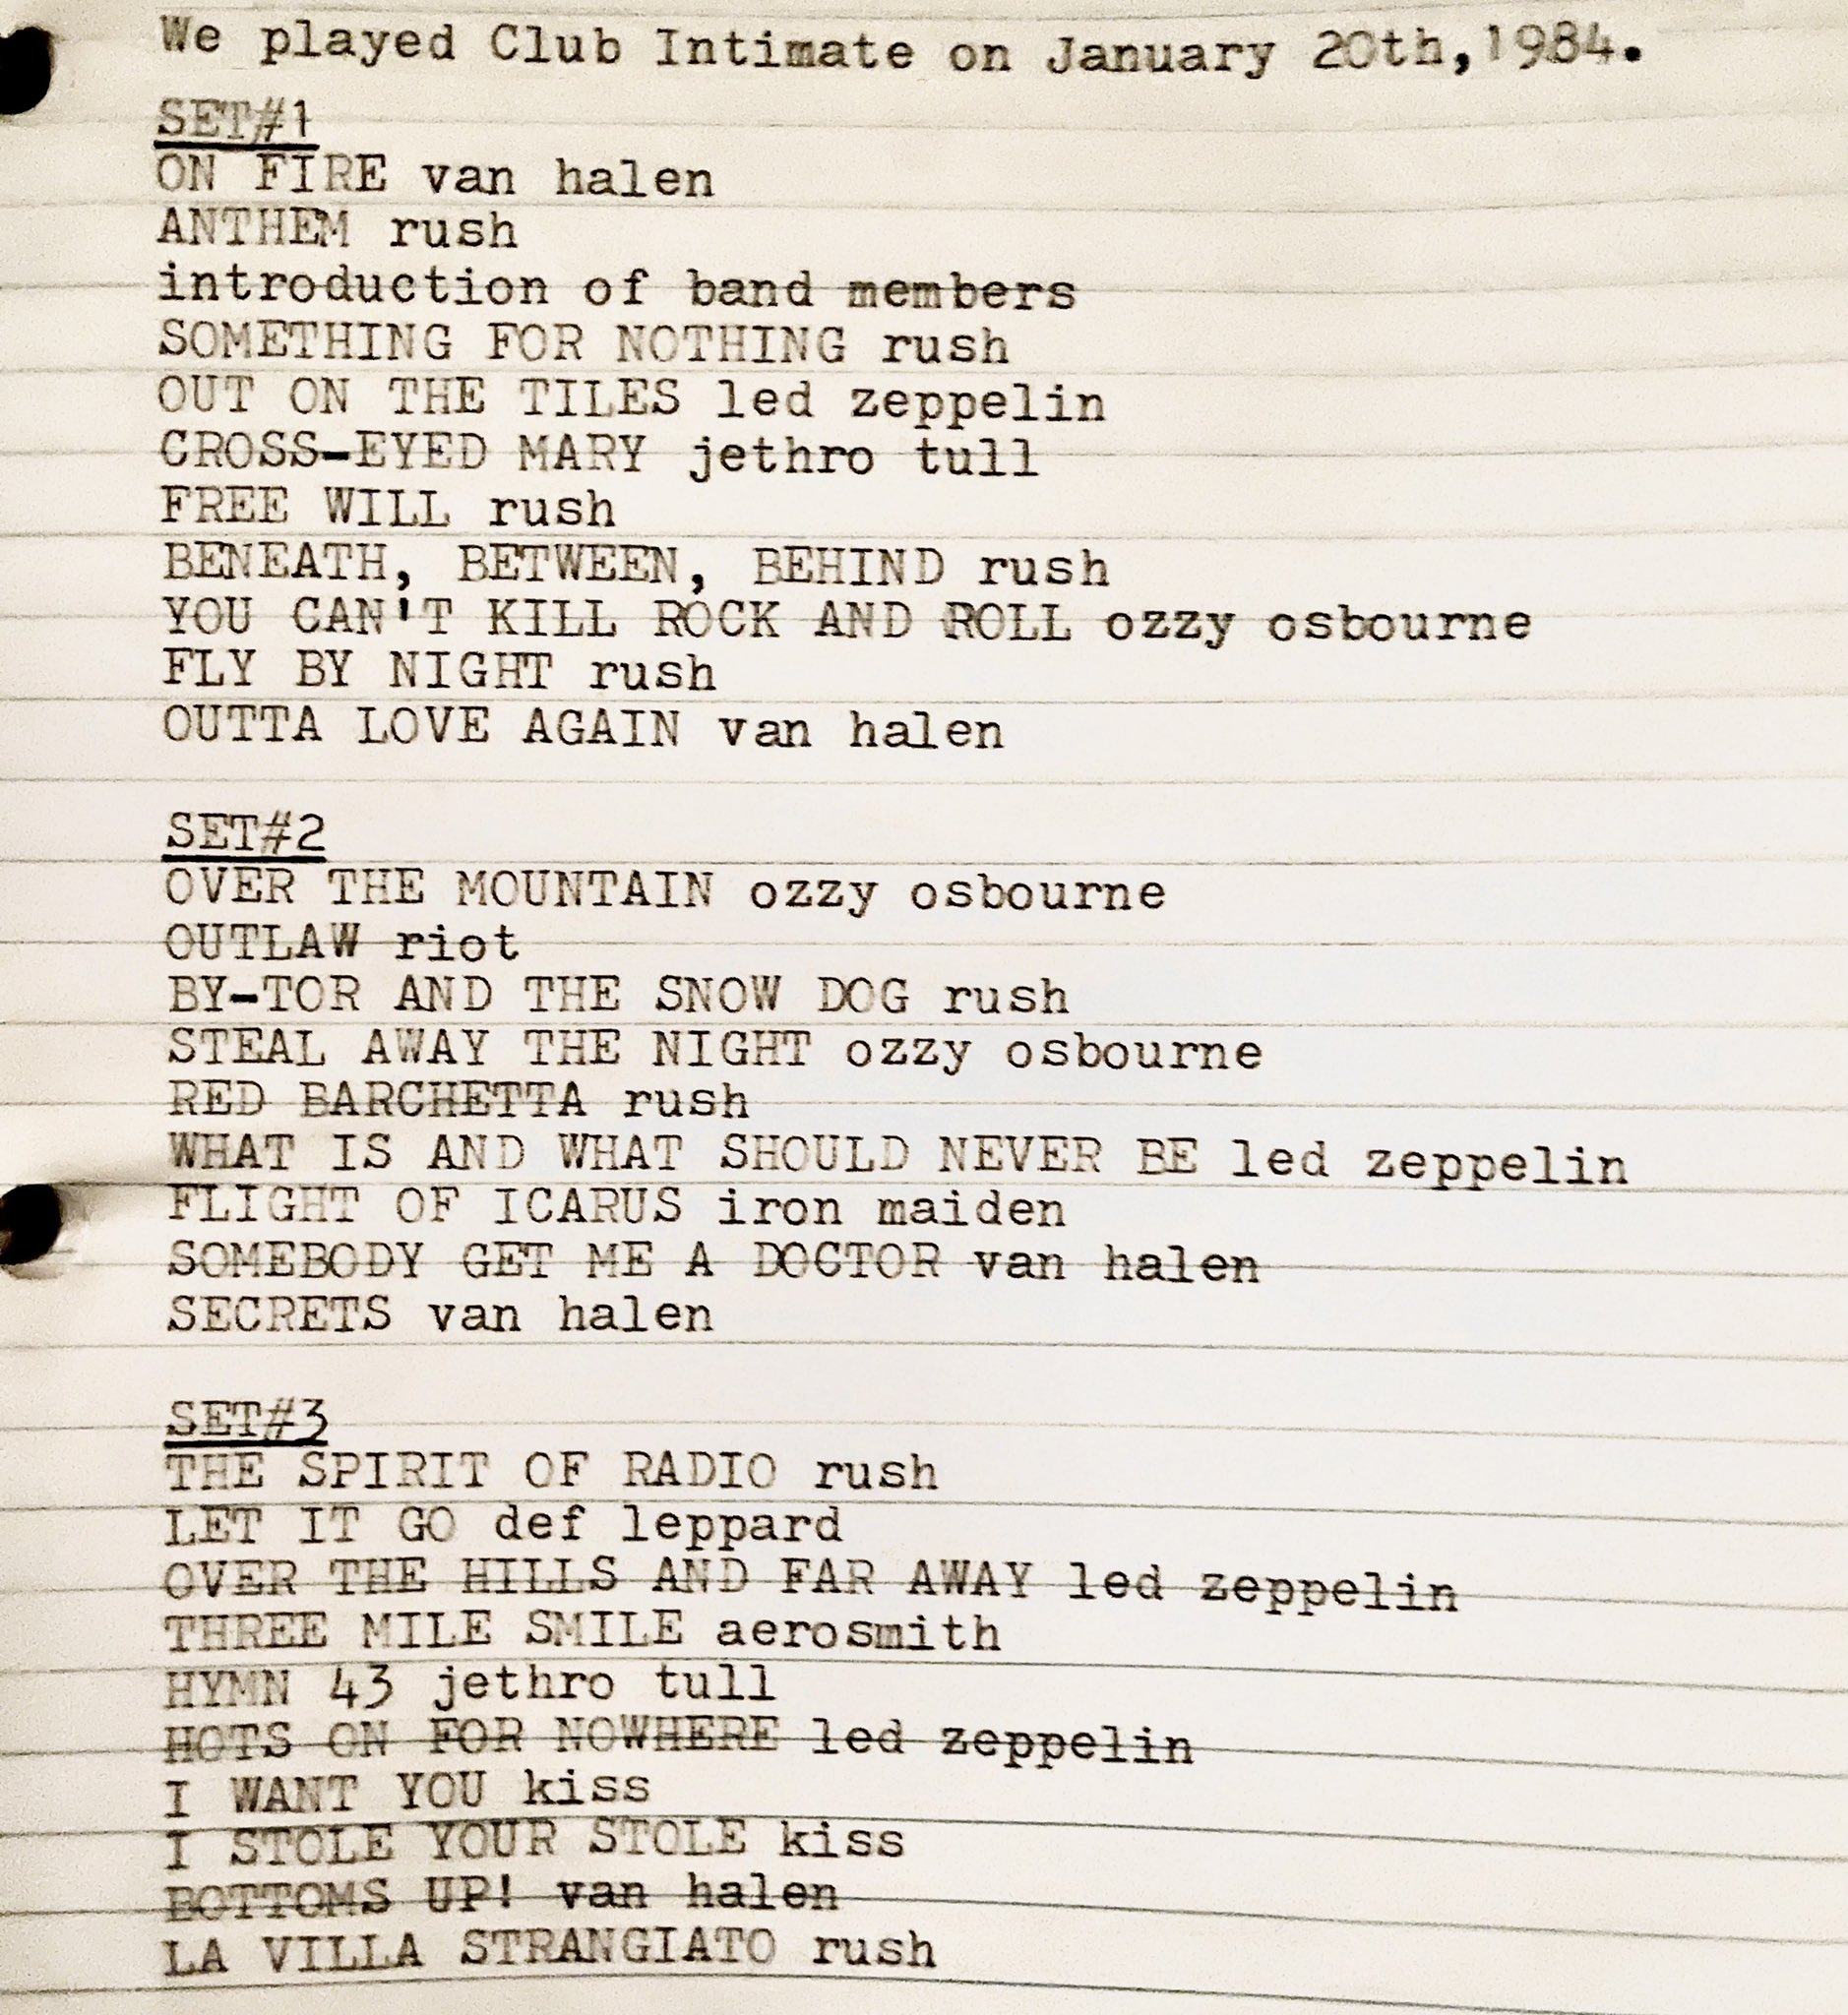 We played Club Intimate on January 20th,1984.
SET#1
ON FIRE van halen
ANTHEM rush
introduction of band members
SOMETHING FOR NOTHING rush
OUT ON THE TILES led zeppelin
CROSS-EYED MARY jethro tull
FREE WILL rush
BENEATH, BETWEEN, BEHIND rush
YOU CAN'T KILL ROCK AND ROLL ozzy osbourne
FLY BY NIGHT rush
OUTTA LOVE AGAIN van halen
SET#2
OVER THE MOUNTAIN ozzy osbourne
OUTLAW riot
BY-TOR AND THE SNOW DOG rush
STEAL AWAY THE NIGHT ozzy osbourne
RED BARCHETTA rush
WHAT IS AND WHAT SHOULD NEVER BE led zeppelin
FLIGHT OF ICARUS iron maiden
SOMEBODY GET ME A DOCTOR van halen
SECRETS van halen
SET#3
THE SPIRIT OF RADIO rush
LET IT GO def leppard
OVER THE HILLS AND FAR AWAY led zeppelin
THREE MILE SMILE aerosmith
HYMN 43 jethro tull
HOTS ON FOR NOWHERE led zeppelin
I WANT YOU kiss
I STOLE YOUR STOLE kiss
BOTTOMS UP! van halen
LA VILLA STRANGIATO rush